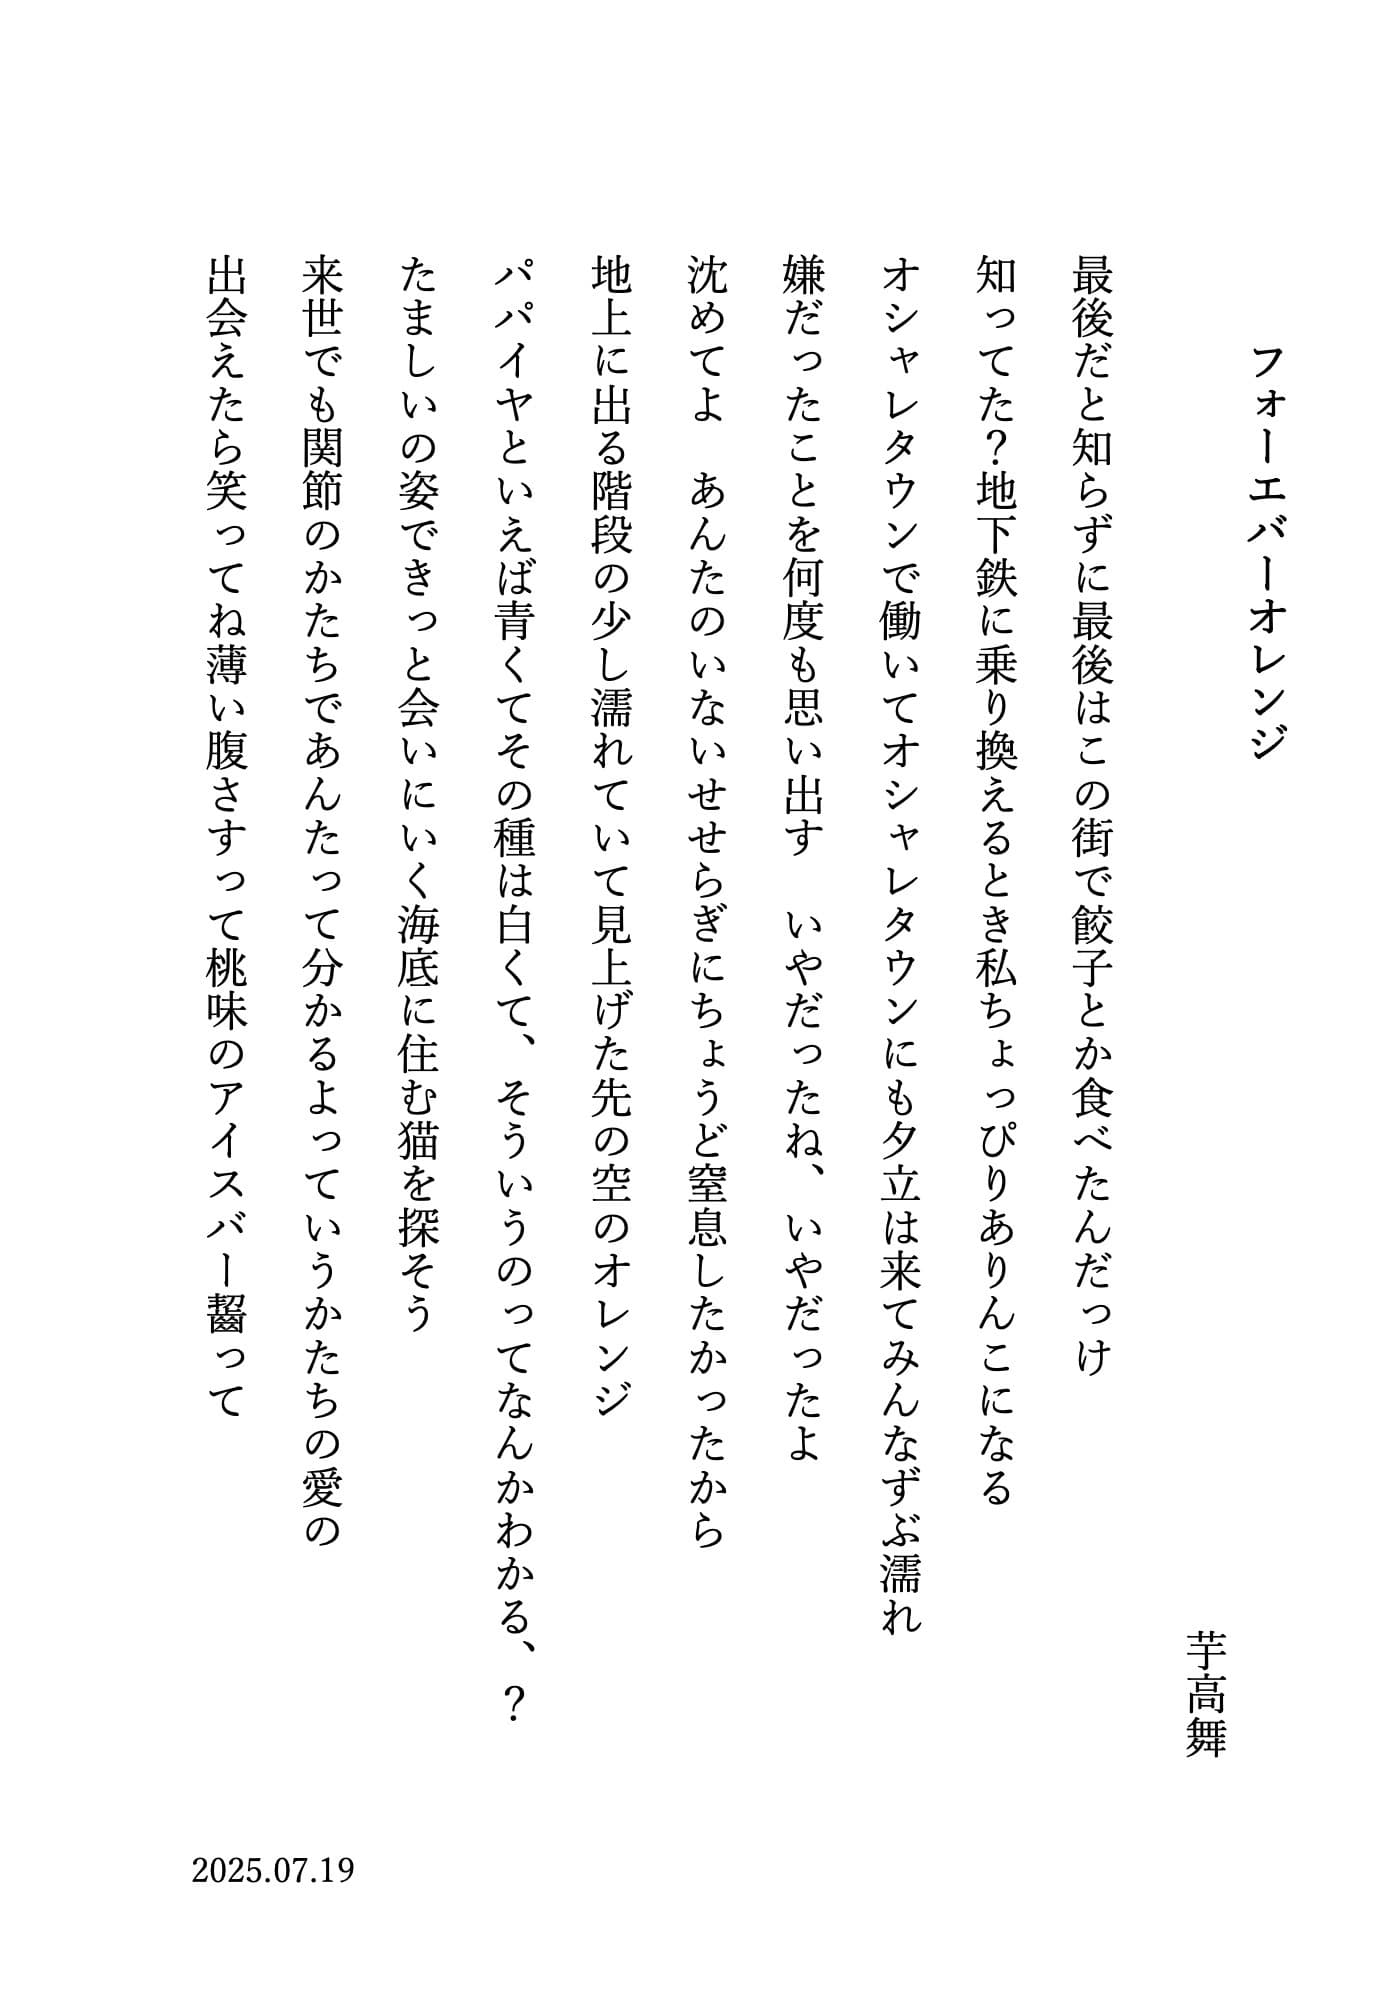 フォーエバーオレンジ
芋高舞
最後だと知らずに最後はこの街で餃子とか食べたんだっけ
知ってた？地下鉄に乗り換えるとき私ちょっぴりありんこになる
オシャレタウンで働いてオシャレタウンにも夕立は来てみんなずぶ濡れ
嫌だったことを何度も思い出す　いやだったね、いやだったよ
沈めてよ　あんたのいないせせらぎにちょうど窒息したかったから
地上に出る階段の少し濡れていて見上げた先の空のオレンジ
パパイヤといえば青くてその種は白くて、そういうのってなんかわかる、？
たましいの姿できっと会いにいく海底に住む猫を探そう
来世でも関節のかたちであんたって分かるよっていうかたちの愛の
出会えたら笑ってね薄い腹さすって桃味のアイスバー齧って
2025.07.19